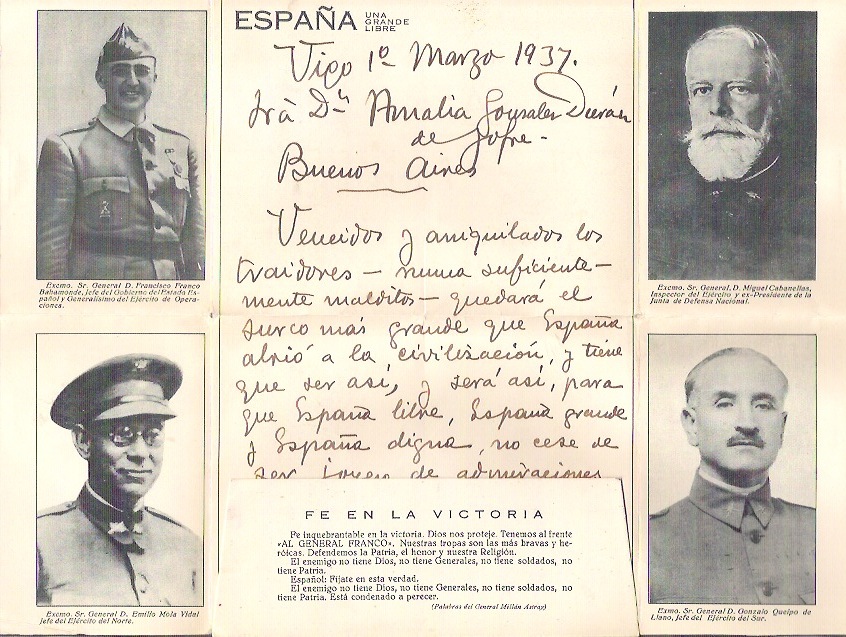 ESPAÑA UNA
GRANDE
LIBRE
Vigo 1º Marzo 1937.
Srà Dª Amalia Gonzalez Durán
de Jofre.-
Buenos Aires
Vencidos y aniquilados los
traidores - nunca suficiente-
mente malditos - quedará el
surco más grande que España
abrió a la civilización, y tiene
que ser así, y será así, para
que España libre, España grande
y España digna, no cese de
ser de admiraciones
Exemo. Sr. General D. Francisco Franco
Bahamonde, Jefe del Gobierno del Estado Es-
pañol y Generalísimo del Ejército de Opera-
ciones.
Exemo. Sr. General D. Emilio Mola Vidal
Jefe del Ejército del Norte.
Exemo. Sr. General, D. Miguel Cabanellas,
Inspector del Ejército y ex-Presidente de la
Junta de Defensa Nacional.
Exemo. Sr. General D. Gonzalo Queipo de
Llano, Jefe del Ejército del Sur.
FE EN LA VICTORIA
Fe inquebrantable en la victoria. Dios nos proteje. Tenemos al frente
«AL GENERAL FRANCO». Nuestras tropas son las más bravas y he-
róicas. Defendemos la Patria, el honor y nuestra Religión.
El enemigo no tiene Dios, no tiene Generales, no tiene soldados, no
tiene Patria.
Español: Fíjate en esta verdad.
El enemigo no tiene Dios, no tiene Generales, no tiene soldados, no
tiene Patria. Está condenado a perecer.
(Palabras del General Millán Astray)